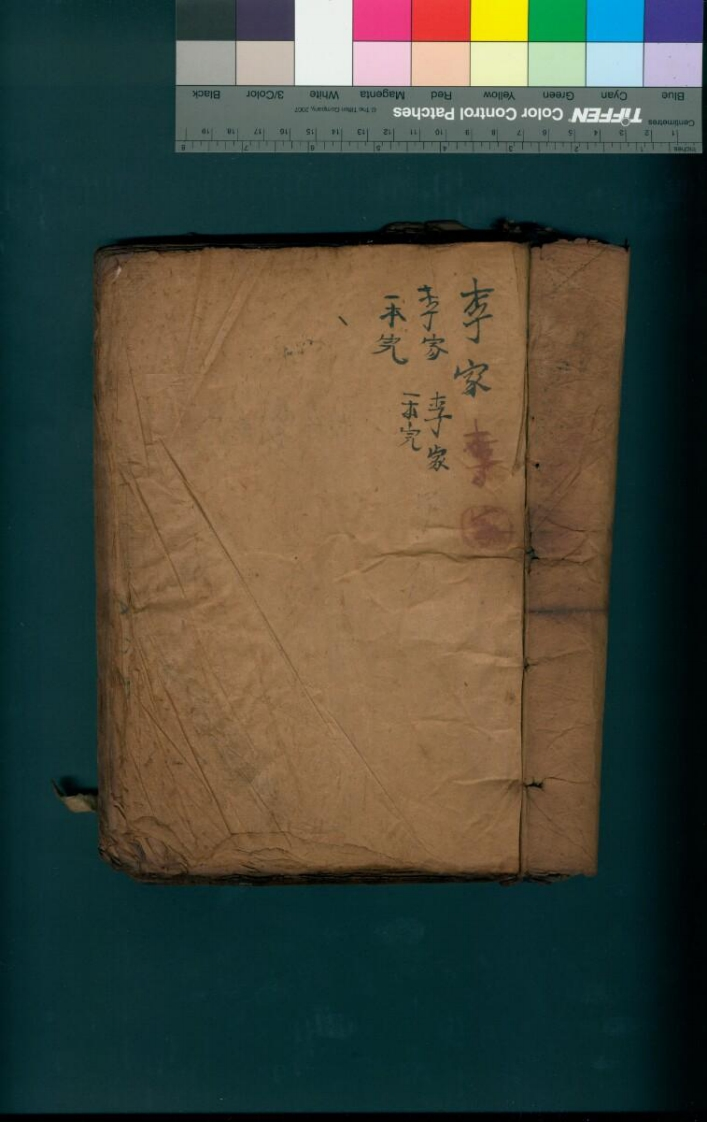 李家
李
李家
一本完
李家
一本完
Blue Cyan Green Yellow Red Magenta White 3/Color Black
TIFFEN Color Control Patches
© The Tiffen Company, 2007
Centimetres
1 2 3 4 5 6 7 8 9 10 11 12 13 14 15 16 17 18 19
Inches
1 2 3 4 5 6 7 8